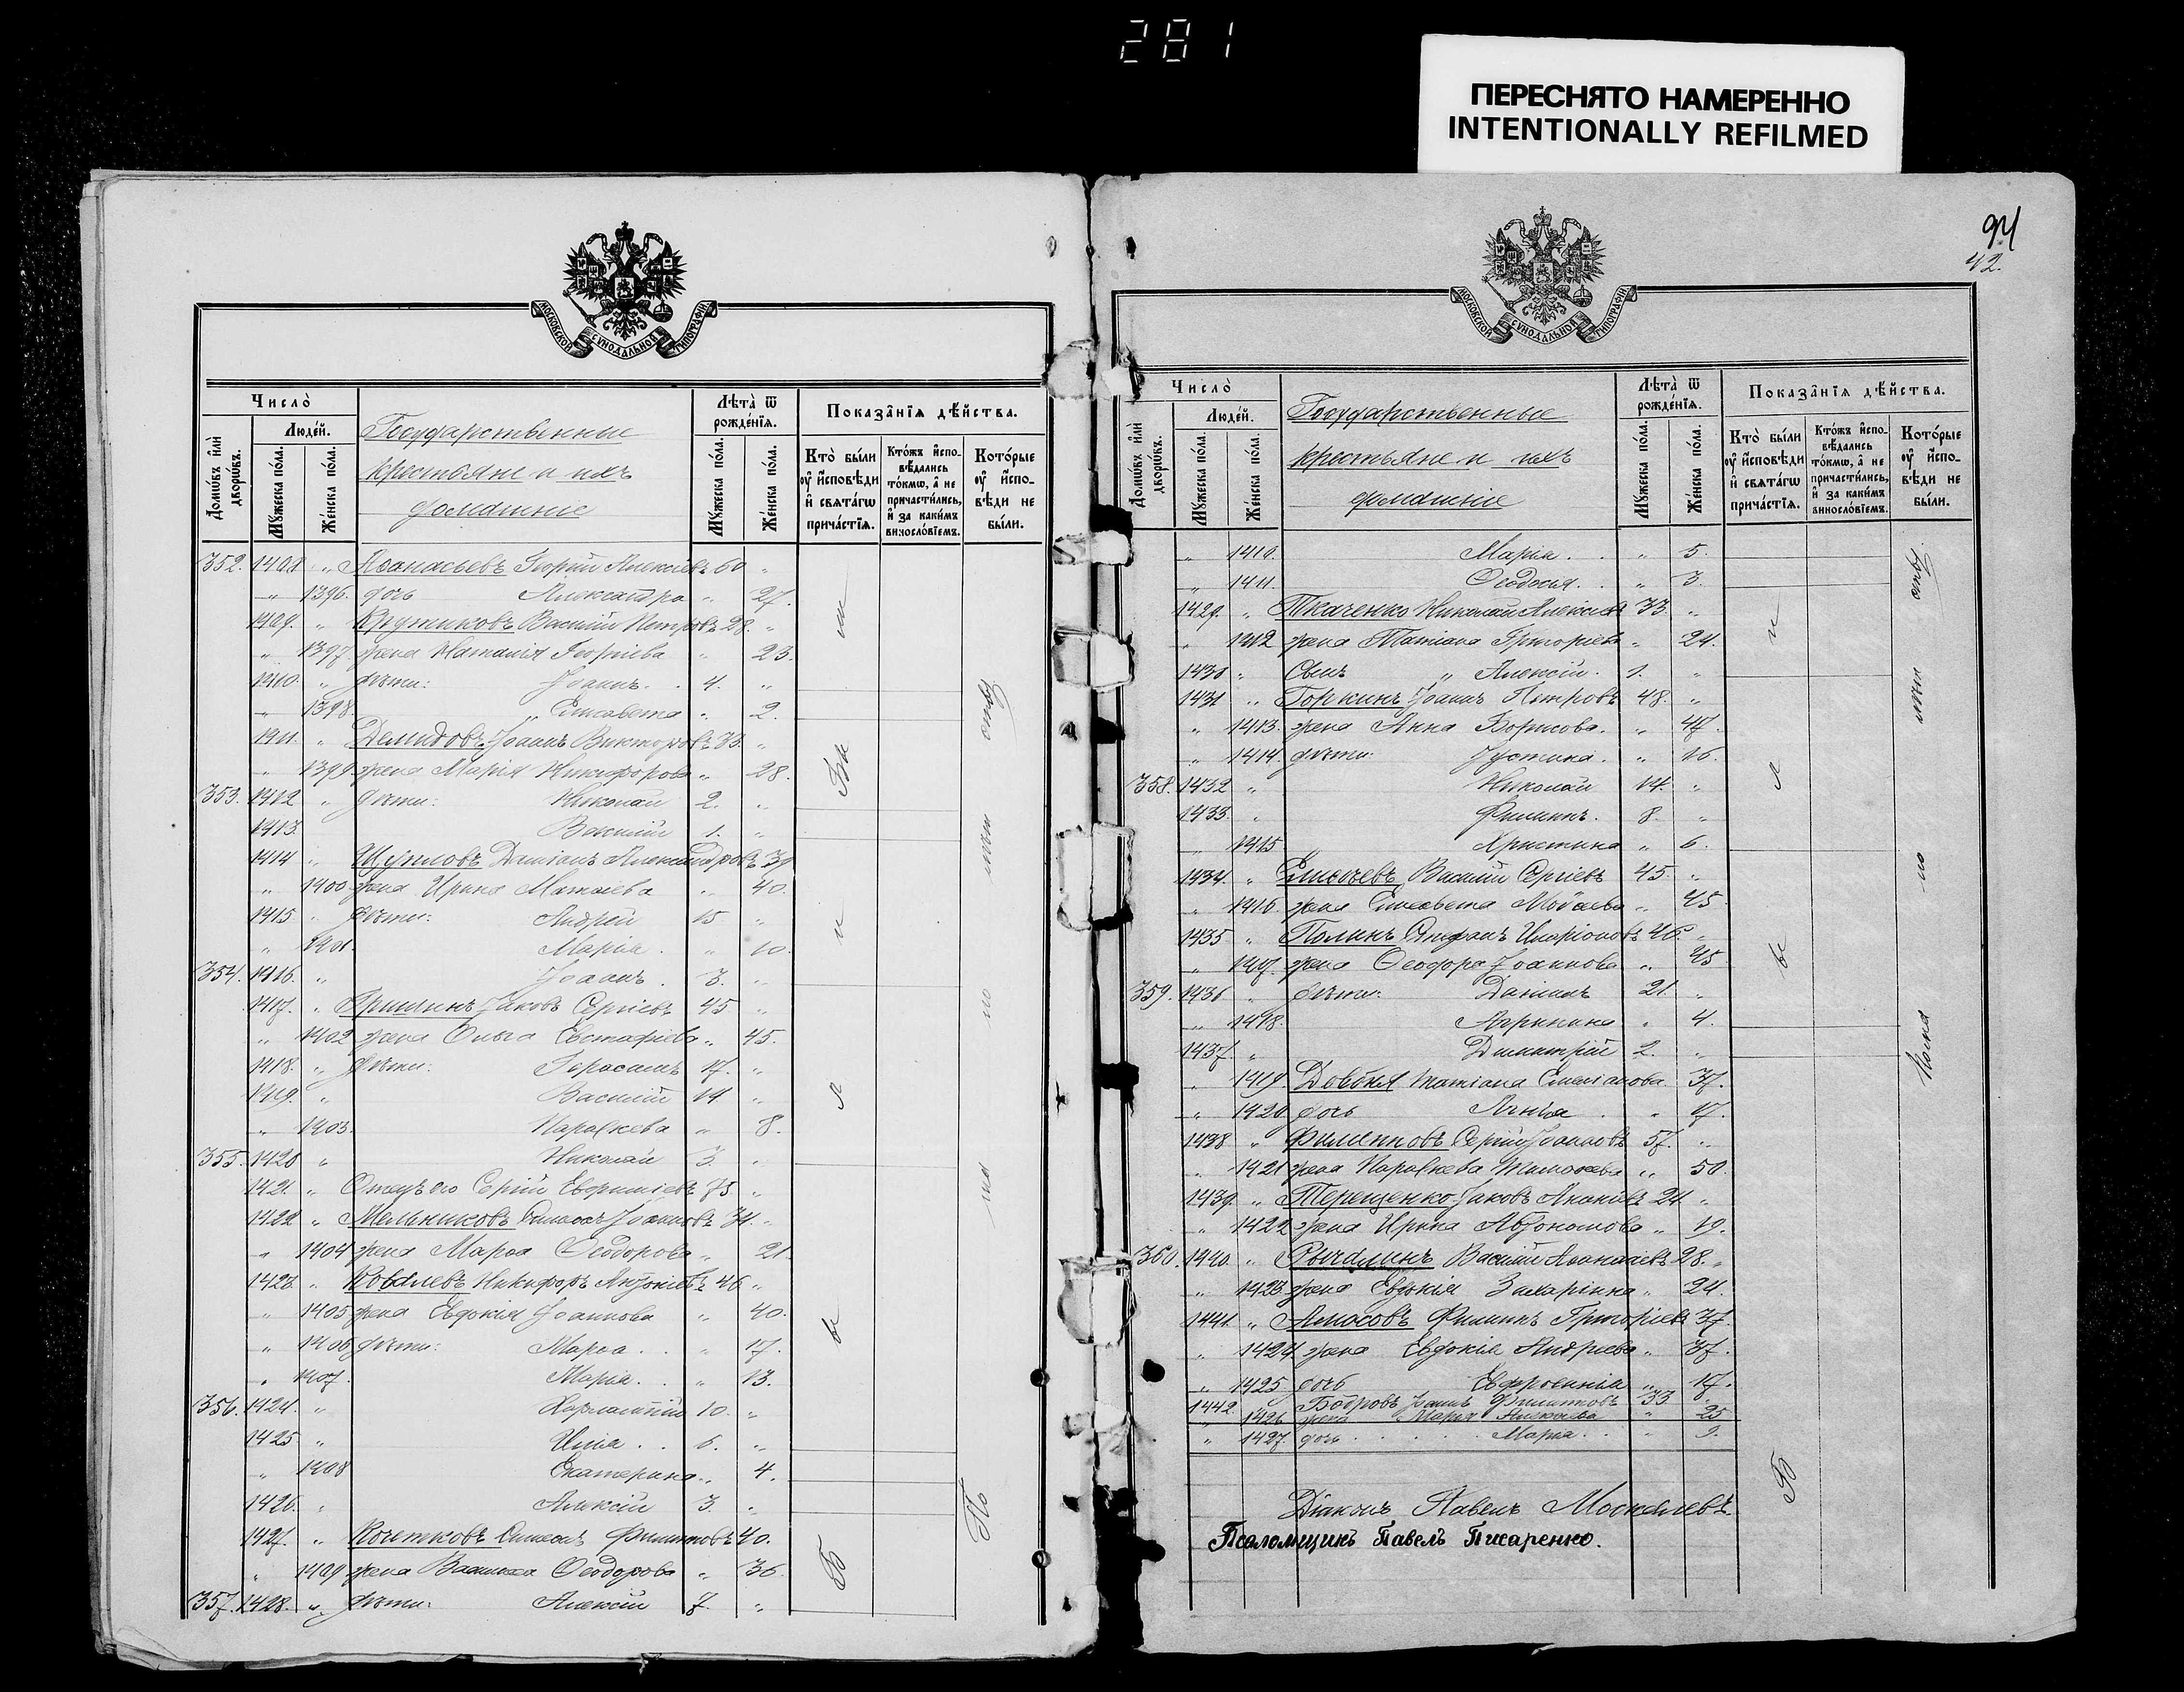 281
ПЕРЕСНЯТО НАМЕРЕННО
INTENTIONALLY REFILMED
МОСКОВСКОЙ СУНОДАЛЬНОЙ ТИПОГРАФІИ
Число̀
Домѡ́въ и҆лѝ дворѡ́въ.
Люде́й.
Мꙋ́жеска по́ла.
Же́нска по́ла.
Государственные
крестьяне и ихъ
домашніе
Лѣ́та ѿ рожде́нїѧ.
Мꙋ́жеска по́ла.
Же́нска по́ла.
Показа̑нїѧ дѣ́йства.
Кто̀ бы́ли ᲂу҆ и҆́сповѣди и҆ свѧта́гѡ прича́стїѧ.
Кто́жъ и҆спо-вѣ́дались то́кмѡ, а҆ не причасти́лись, и҆ за каки́мъ винослѡ́вїемъ.
Кото́рые ᲂу҆ и҆́спо-вѣди не бы́ли.
352. 1408 „ Аѳанасьевъ Георгій Алексѣевъ 60 „
„ 1396. дочь Александра „ 27.
1409. „ Крутиковъ Василій Петровъ 28. „
„ 1397. жена Наталія Георгіева „ 23.
1410. „ дѣти: Іоаннъ. 4. „
„ 1398. „ Елисавета „ 2.
1411. „ Демидовъ Іоаннъ Викторовъ 33. „
„ 1399. жена Марія Никифорова „ 28.
353. 1412 „ дѣти: Николай 2. „
1413. Василій 1. „
1414 „ Щугловъ Даміанъ Александровъ 39
„ 1400 жена Ирина Матѳіева „ 40.
1415 „ дѣти: Андрей 15 „
„ 1401. Марія. „ 10.
354. 1416. „ Іоаннъ. 3. „
1417. „ Гришинъ Іаковъ Сергіевъ 45. „
„ 1402 жена Ольга Евстафіева „ 45.
1418. „ дѣти: Герасимъ 17. „
1419. „ Василій 14 „
„ 1403. Параскева „ 8.
355. 1420 „ Николай 3. „
1421. „ Отецъ его Сергій Евфиміевъ 75. „
1422 „ Мельниковъ Симеонъ Іоанновъ 34. „
„ 1404 жена Марѳа Ѳеодорова „ 21
1423. „ Ковалевъ Никифоръ Антоніевъ 46 „
„ 1405 жена Евдокія Іоаннова „ 40.
„ 1406 дѣти: Марѳа. „ 17.
„ 1407. Марія. „ 13.
356. 1424. „ Харлампій 10. „
1425 „ Илія. 6. „
„ 1408 Екатерина „ 4.
1426. „ Алексій 3. „
1427. „ Кочетковъ Симеонъ Филипповъ 40.
„ 1409 жена Василиса Ѳеодорова „ 36.
357. 1428. „ дѣти: Алексій 7. „
94
42.
МОСКОВСКОЙ СУНОДАЛЬНОЙ ТИПОГРАФІИ
Число̀
Домѡ́въ и҆лѝ дворѡ́въ.
Люде́й.
Мꙋ́жеска по́ла.
Же́нска по́ла.
Государственные
крестьяне и ихъ
домашніе
Лѣ́та ѿ рожде́нїѧ.
Мꙋ́жеска по́ла.
Же́нска по́ла.
Показа̑нїѧ дѣ́йства.
Кто̀ бы́ли ᲂу҆ и҆́сповѣди и҆ свѧта́гѡ прича́стїѧ.
Кто́жъ и҆спо-вѣ́дались то́кмѡ, а҆ не причасти́лись, и҆ за каки́мъ винослѡ́вїемъ.
Кото́рые ᲂу҆ и҆́спо-вѣди не бы́ли.
„ 1410. Марія. „ 5.
„ 1411. Ѳеодосія. „ 3.
1429. „ Ткаченко Николай Алексѣевъ 33. „
„ 1412 жена Татіана Григоріева „ 24.
1430 „ Сынъ „ Алексій. 1. „
1431 „ Горкинъ Іоаннъ Петровъ 48. „
„ 1413. жена Анна Борисова. „ 47.
„ 1414. дѣти: Іустина. „ 16.
358. 1432 „ Николай 14. „
1433. „ Филиппъ. 8. „
„ 1415 Христина „ 6.
1434. „ Елисѣевъ Василій Сергіевъ 45. „
„ 1416. жена Елисавета Моѵсеева „ 45
1435 „ Полинъ Стефанъ Иларіоновъ 46. „
„ 1417. жена Ѳеодора Іоаннова „ 45
359. 1436 „ дѣти: Даніилъ 21. „
„ 1418. Агрипина „ 4.
1437. „ Димитрій 2. „
„ 1419. Довбня Татіана Емеліанова 37.
„ 1420 дочь Агнія „ 17.
1438 „ Филипповъ Сергій Іоанновъ 57. „
„ 1421 жена Параскева Тимоѳеева „ 50.
1439. „ Терещенко Іаковъ Ананіевъ 24 „
„ 1422 жена Ирина Автономова „ 19.
360. 1440. „ Рычалинъ Василій Аѳанасіевъ 28. „
„ 1423. жена Евдокія Захаріина „ 24.
1441. „ Амосовъ Филиппъ Григоріевъ 37.
„ 1424 жена Евдокія Андреева „ 37.
„ 1425 дочь Евфросинія „ 17.
1442. Бобровъ Іоаннъ Филипповъ 33
„ 1426 жена Марія Алексѣева „ 25
„ 1427. дочь Марія. „ 9.
Діаконъ Павелъ Москалевъ
Псаломщикъ Павелъ Писаренко.